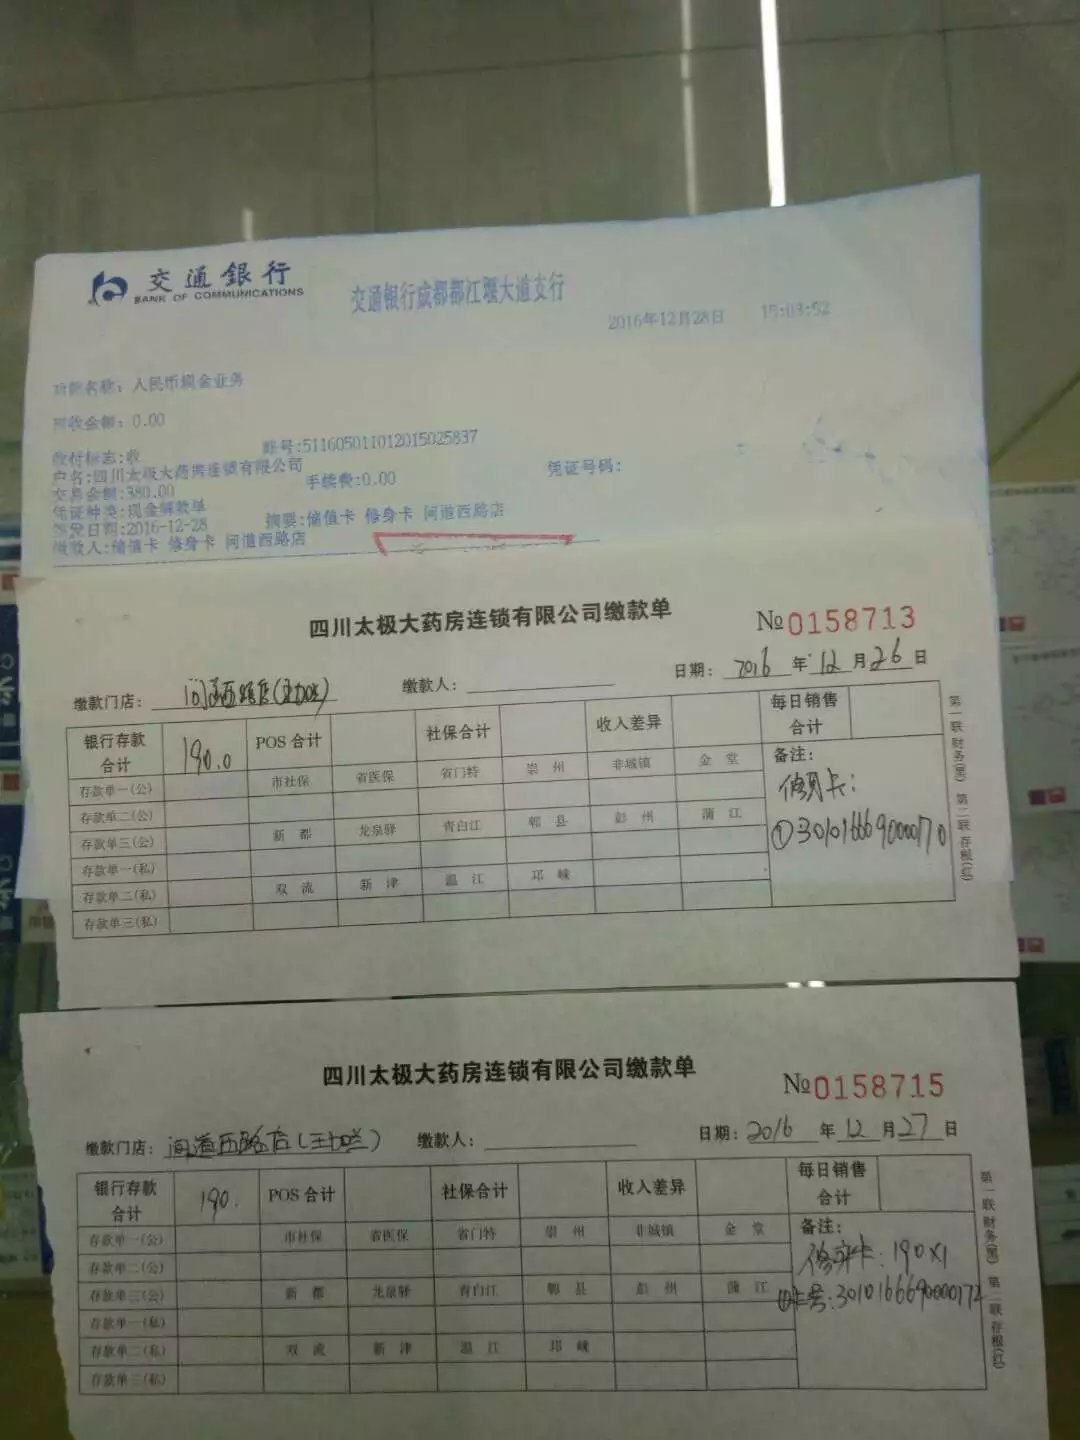 交通銀行
BANK OF COMMUNICATIONS
交通银行成都都江堰大道支行
2016年12月28日 15:03:52
功能名称：人民币现金业务
应收金额：0.00
收付标志:收 账号:511605011012015025837
户名:四川太极大药房连锁有限公司 凭证号码:
交易金额:380.00 手续费:0.00
凭证种类:现金解款单
签发日期:2016-12-28 摘要:储值卡 修身卡 问道西路店
缴款人:储值卡 修身卡 问道西路店
四川太极大药房连锁有限公司缴款单
№0158713
缴款门店: 问道西路店 缴款人: 日期: 2016 年 12 月 26 日
银行存款合计 190.0 POS 合计 社保合计 收入差异 每日销售合计
存款单一(公) 市社保 省医保 省门特 崇州 非城镇 金堂 备注:
存款单二(公) 修身卡:
存款单三(公) 新都 龙泉驿 青白江 郫县 彭州 蒲江 ①3010166690000170
存款单一(私)
存款单二(私) 双流 新津 温江 邛崃
存款单三(私)
第一联 财务(黑) 第二联 存根(红)
四川太极大药房连锁有限公司缴款单
№0158715
缴款门店: 问道西路店 缴款人: 日期: 2016 年 12 月 27 日
银行存款合计 190. POS 合计 社保合计 收入差异 每日销售合计
存款单一(公) 市社保 省医保 省门特 崇州 非城镇 金堂 备注:
存款单二(公) 修身卡: 190×1
存款单三(公) 新都 龙泉驿 青白江 郫县 彭州 蒲江 ①卡号:3010166690000172
存款单一(私)
存款单二(私) 双流 新津 温江 邛崃
存款单三(私)
第一联 财务(黑) 第二联 存根(红)